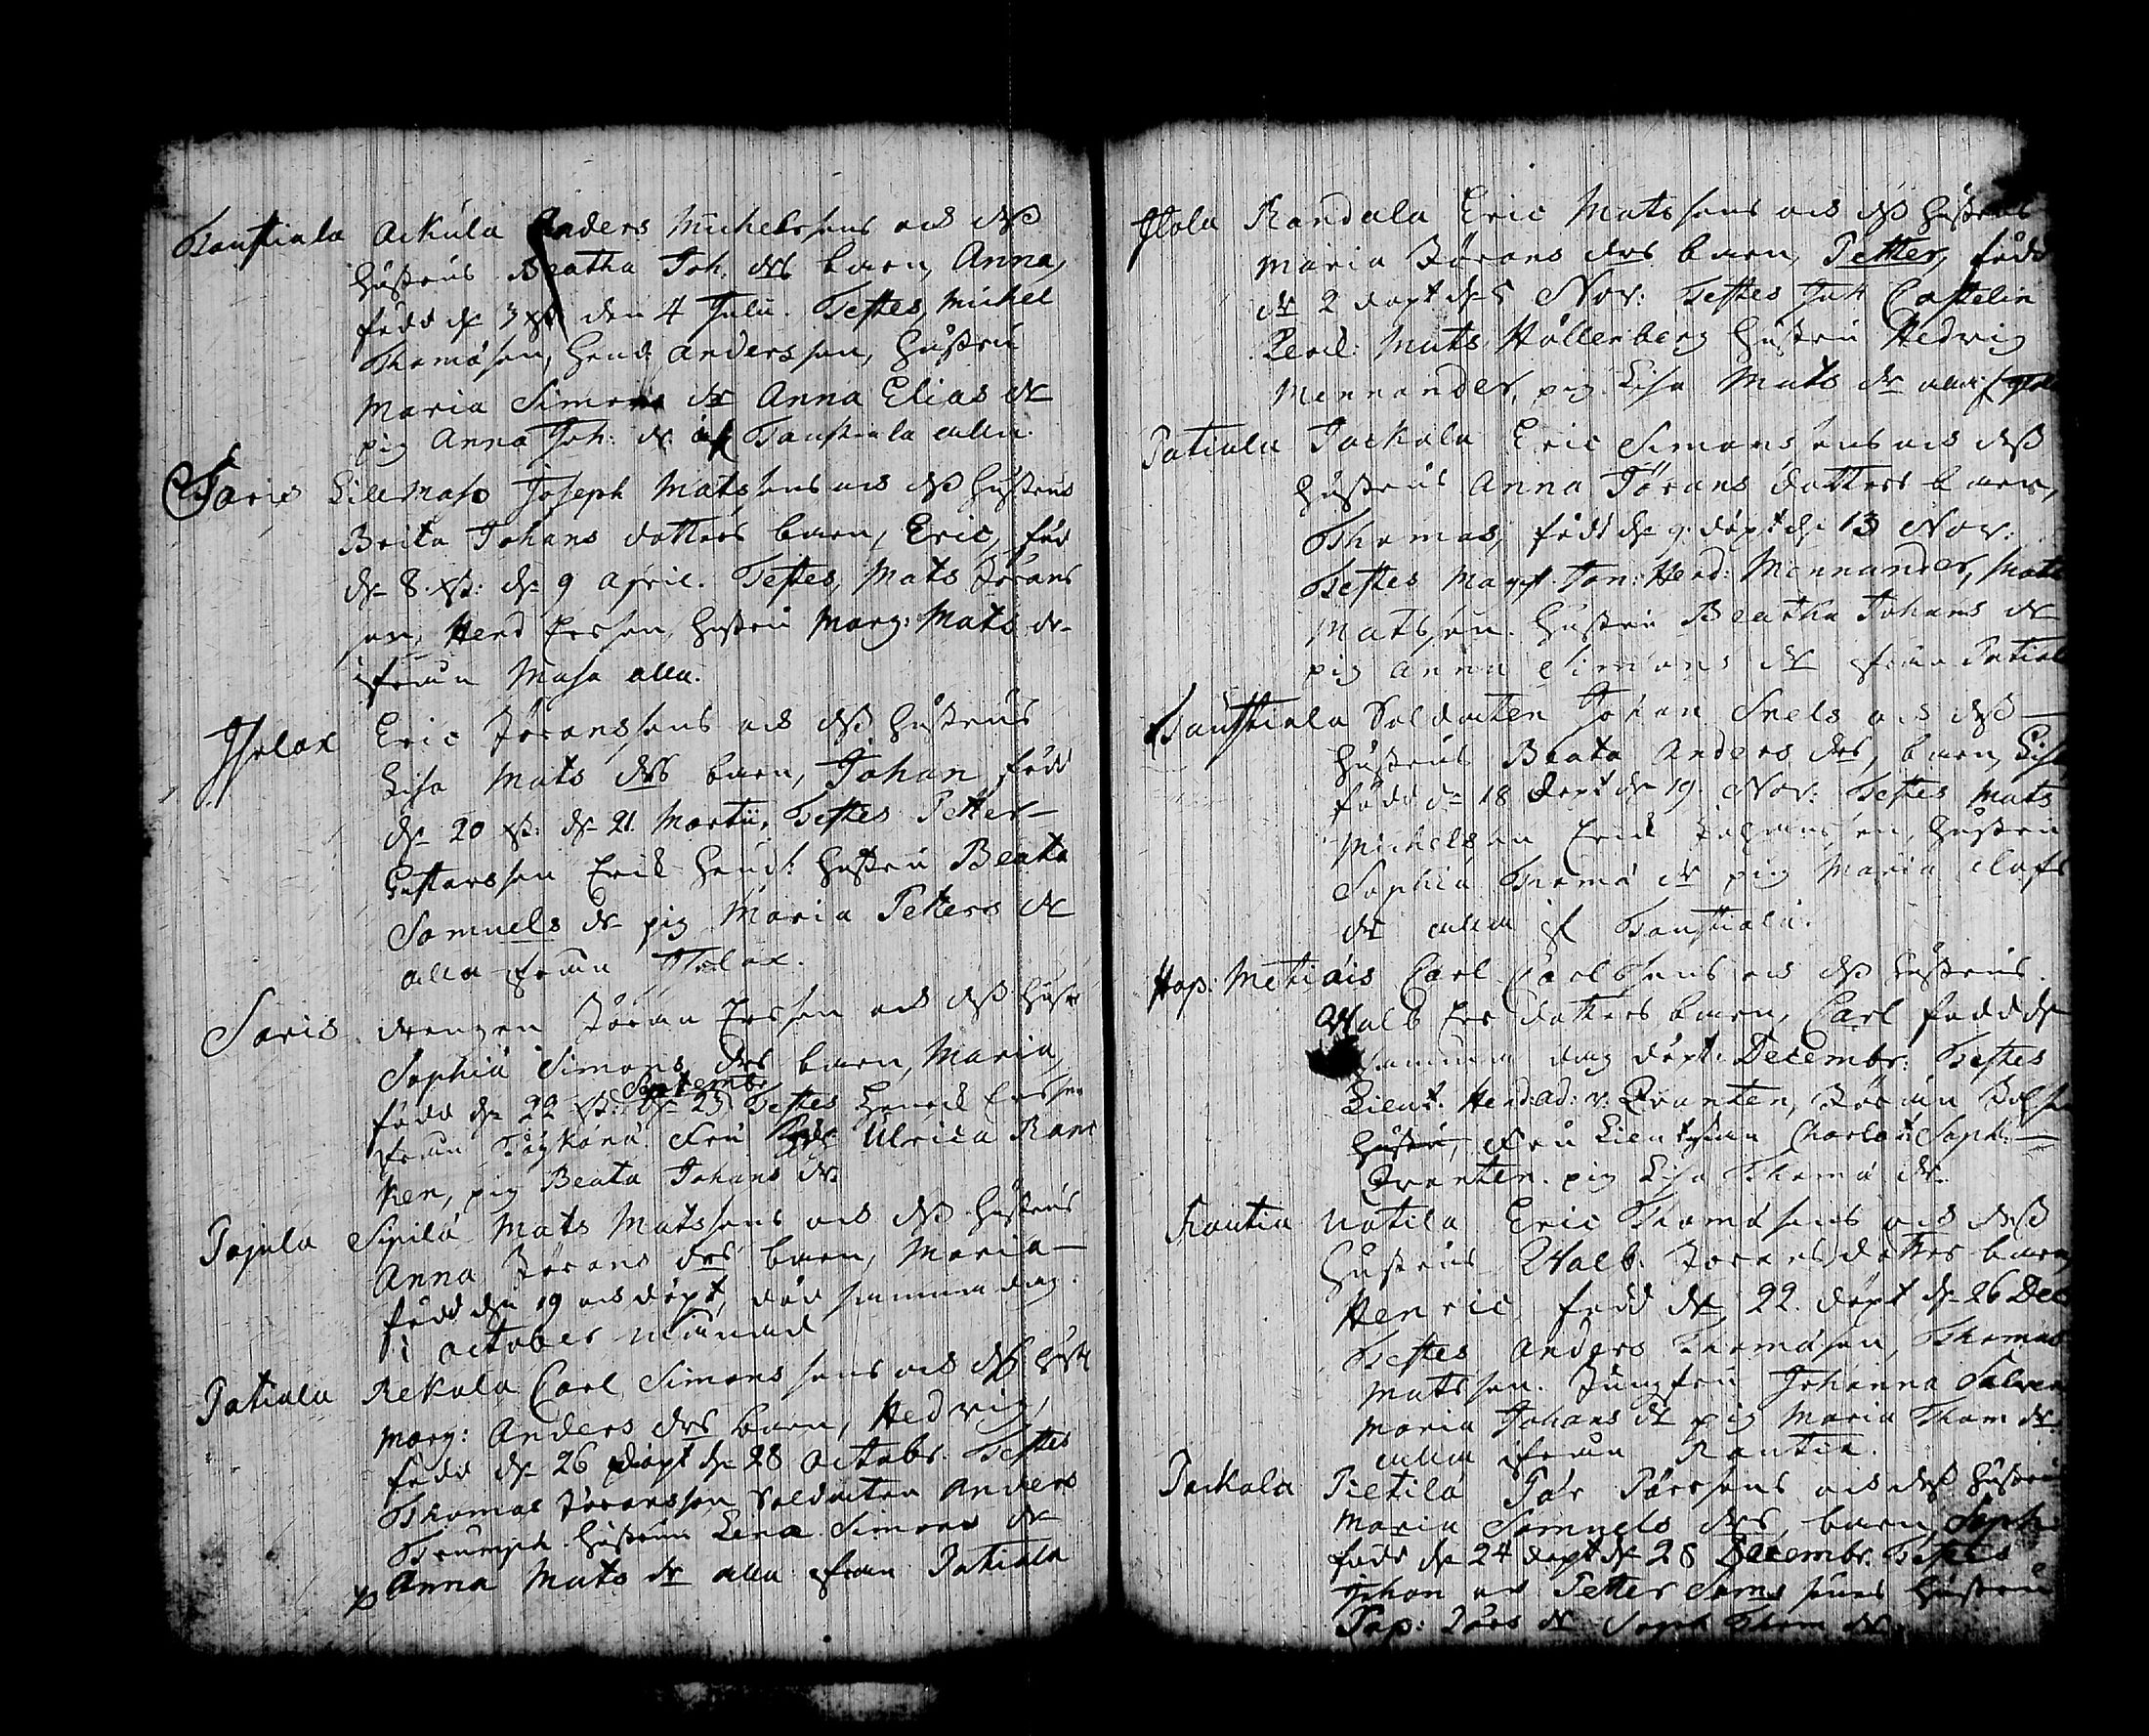 Taustiala Ackula Anders Michelssons och dess
hustrus Beatha Joh. drs barn, Anna,
född d. 3 xst den 4 Julii. Testes, Michel
Thomasson, Hend: Andersson, hustru
Maria Simons dr Anna Elias dr
pig Anna Joh: dr af Taustiala alla.
Saris Lillmasa Joseph Matssons och dess hustrus
Brita Johans dotters barn, Eric, föd
d. 8. xst: d. 9 April. Testes, Mats Jörans
son, Hend Ersson, hustru Marg: Mats dr
ifrån Masa alla.
Eric Jöranssons och dess hustrus
Lisa Mats drs barn, Johan, född
d. 20 xst: d. 21. Martii, Testes Petter
Gustavsson Erik Hendr: hustru Beata
Samuels dr pig Maria Petters dr
alla ifrån
Saris. drengen Jöran Ersson och dess hustr
Sophia Simons drs barn, Maria,
Septembr
född d. 22 xst: d. 23. Testes Henrik Ersson
ifrån Fru Ulrica Ram
ken, pig Beata Johans dr.
Pajula Sipilä Mats Matssons och dess hustrus
Anna Jörans drs barn, Maria
född den 19 och döpt, död samma dag.
i October månad
Patiala Rekola Carl Simonssons och dess hustr
Marg: Anders drs barn, Hedvig,
född d. 26 döpt d. 28 Octobr. Testes
Thomas Jöransson, Soldaten Anders
Triumph. hustrun Lena Simons dr
p Anna Mats dr alla ifrån Patiala
Jtola Randala Eric Matssons och dess hustrus
Maria Jörans drs barn, Petter, född
d. 2 döpt d. 5 Nov: Testes Joh Castelin
Mats Hällenberg hustru Hedvig
Mennander, pig Lisa Mats dr alla if Jtola
Patiala Jackola Eric Simonssons och dess
hustrus Anna Jörans dotters barn,
Thomas, född d. 9. döpt d. 13 Nov:
Testes Hend: Mennander, Mats
Matsson. hustru Beatha Johans dr
pig Anna Simons dr ifrån Patiala
Taustiala Soldaten Johan Snels och dess
hustrus Beata Anders drs, barn, Lisa
född d. 18 döpt d. 19 Nov: Testes Mats
Michelsson Erik Johansson, hustru
Sophia Thoma dr pig Maria Olofs
dr alla if Taustiala.
Hap: Metiäis Carl Carlssons och dess hustrus
Walb Ers dotters barn, Carl född d
samma dag döpt: Decembr: Testes
Lieut: Hend: ad: v: Qvanten, Jöran
hustru, Fru Charlot: Soph:
Qvanten. pig Lisa Thoma dr.
Rautia Uotila Eric Thomassons och dess
hustrus Walb. Jörans dotters barn
Henric född d. 22. döpt d. 26 Dec
Testes Anders Thomasson, Thomas
Matsson. Jungfru Johanna
Maria Johans dr pig Maria Thom dr.
alla ifrån Rautia.
Jackola Pietilä Pär Pärssons och dess hustrus
Maria Samuels drs, barn, Soph:
född d. 24 döpt d. 28 Decembr. Testes
Johan och Petter Sams söner hustru
Pärs dr Soph Thom dr